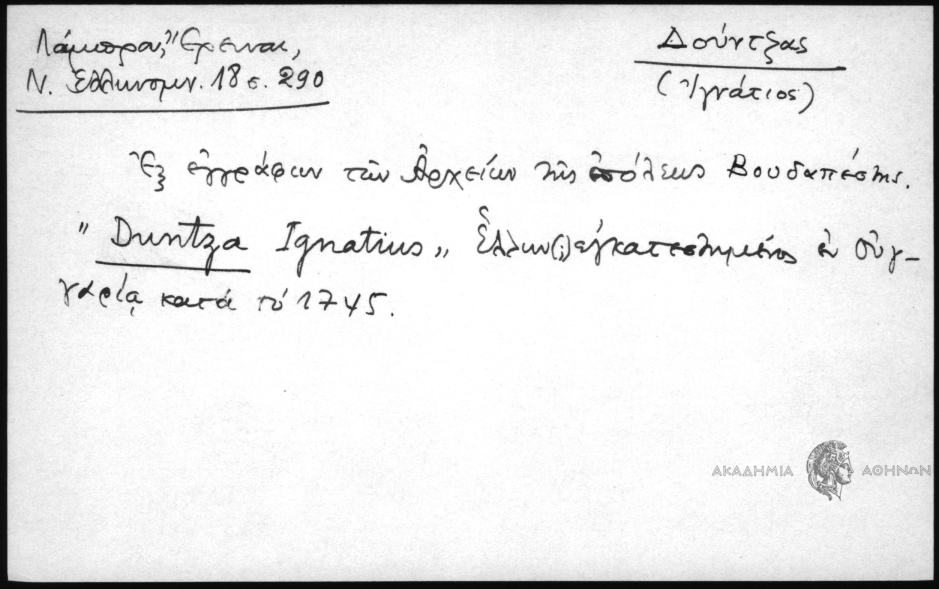 Λάμπρου, Ἔρευναι,
Ν. Ἑλληνομν. 18 σ. 290
Δούντζας
(Ἰγνάτιος)
Ἐξ ἐγγράφων τῶν Ἀρχείων τῆς πόλεως Βουδαπέστης.
"Duntza Ignatius„ Ἕλλην(;) ἐγκατεστημένος ἐν Οὑγ-
γαρίᾳ κατά τό 1745.
ΑΚΑΔΗΜΙΑ ΑΘΗΝΩΝ